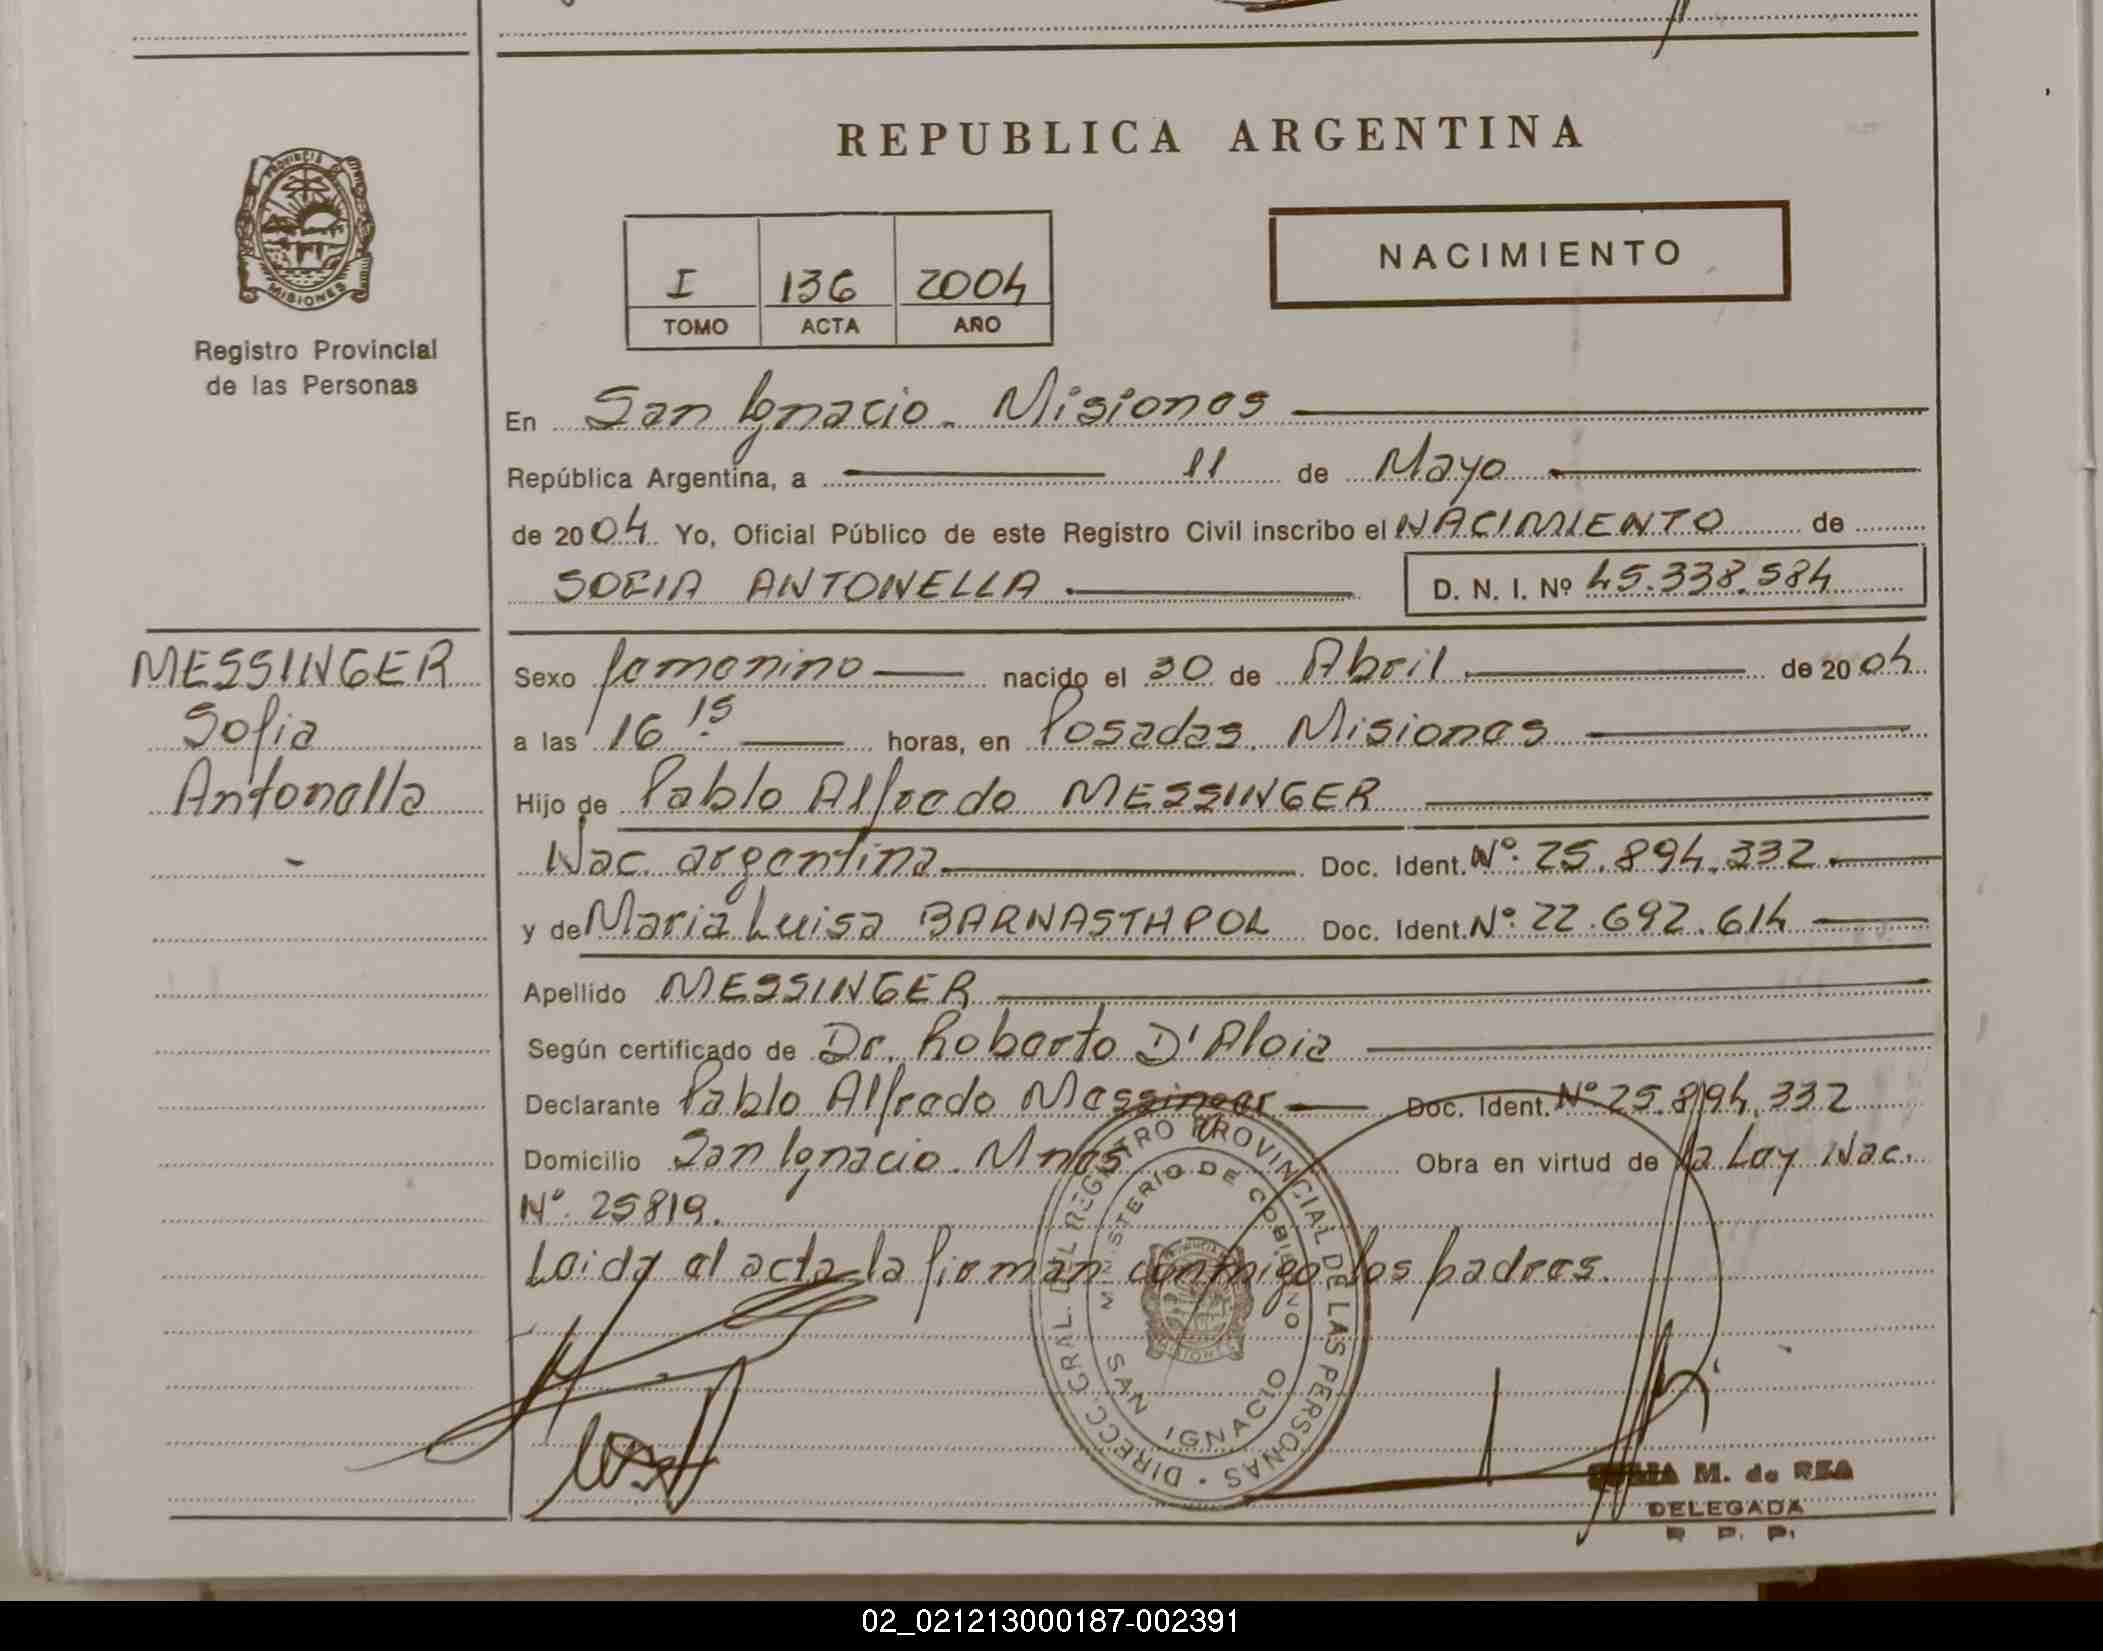 REPUBLICA ARGENTINA
PROVINCIA DE MISIONES
Registro Provincial
de las Personas
I 136 2004
TOMO ACTA AÑO
NACIMIENTO
En San Ignacio. Misiones
República Argentina, a 11 de Mayo
de 2004. Yo, Oficial Público de este Registro Civil inscribo el NACIMIENTO de
SOFIA ANTONELLA D. N. I. Nº 45.338.584
MESSINGER
Sofia
Antonella
Sexo femenino nacido el 30 de Abril de 2004
a las 16 15 horas, en Posadas. Misiones
Hijo de Pablo Alfredo MESSINGER
Nac. argentina Doc. Ident. Nº: 25.894.332
y de Maria Luisa BARNASTHPOL Doc. Ident. Nº: 22.692.614
Apellido MESSINGER
Según certificado de Dr. Roberto D'Aloia
Declarante Pablo Alfredo Messinger Doc. Ident. Nº 25.894.332
Domicilio San Ignacio. Mnes Obra en virtud de la Ley Nac.
Nº. 25819.
Leida el acta la firman conmigo los padres.
DIRECC. GRAL. DEL REGISTRO PROVINCIAL DE LAS PERSONAS
MINISTERIO DE GOBIERNO
MISIONES
SAN IGNACIO
M. de REA
DELEGADA
R. P. P.
02_021213000187-002391